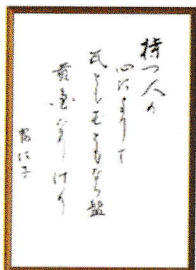 持つ人の
心によりて
瓦とも ともなる盤
黄金なりけり